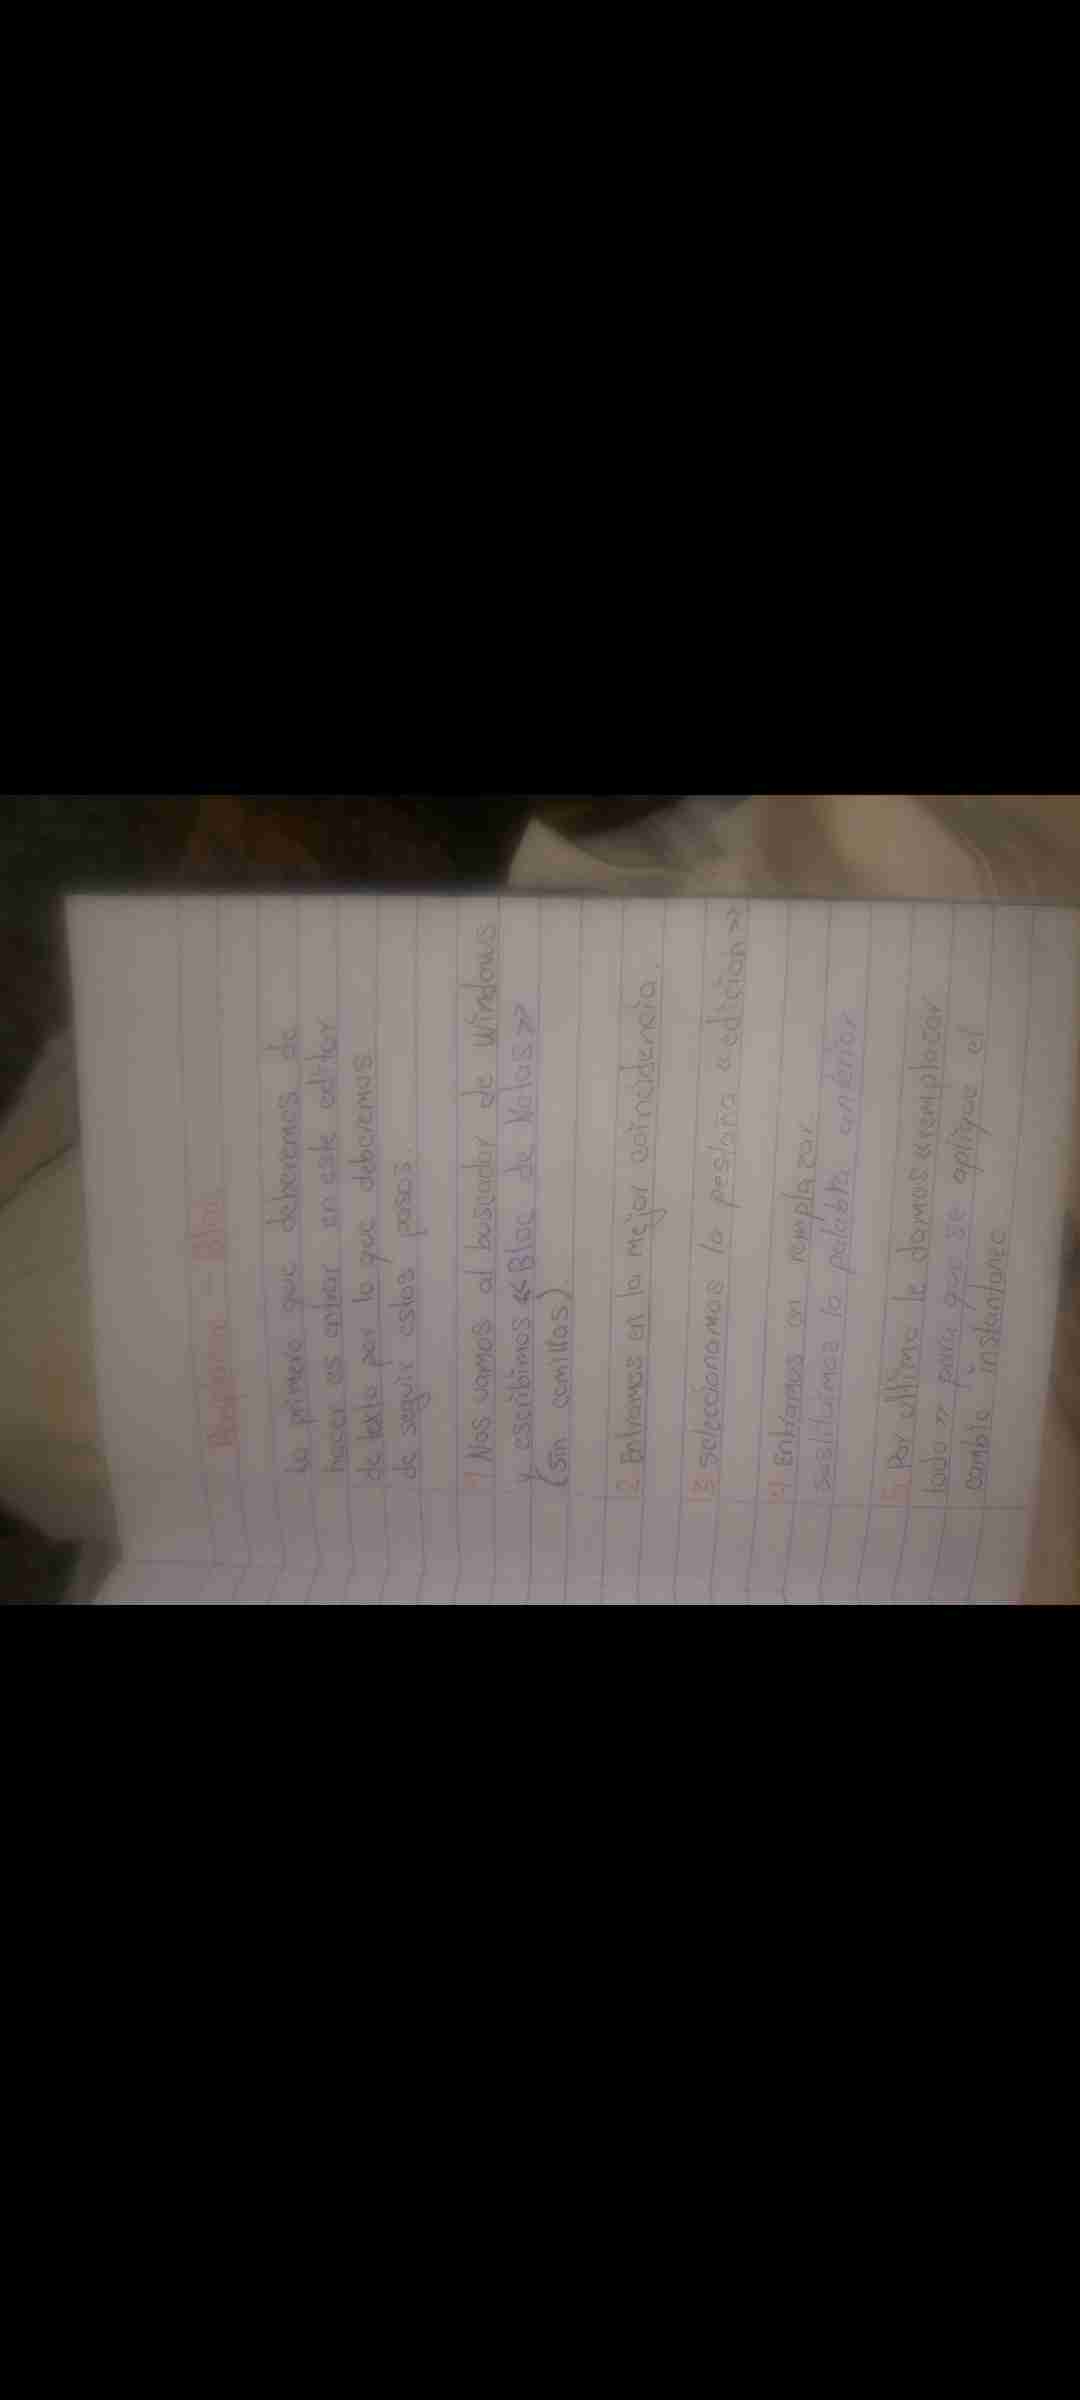 Lo primero que deberemos de
hacer es entrar en este editor
de texto por lo que deberemos
de seguir estos pasos.
1 Nos vamos al buscador de Windows
y escribimos «Bloc de Notas»
(sin comillas).
2 Entramos en la mejor coincidencia.
3 seleccionamos la pestaña «edición»
4 Entramos en remplazar.
sustituimos la palabra anterior
5 Por ultimo le damos «remplazar
todo» para que se aplique el
cambio instantaneo